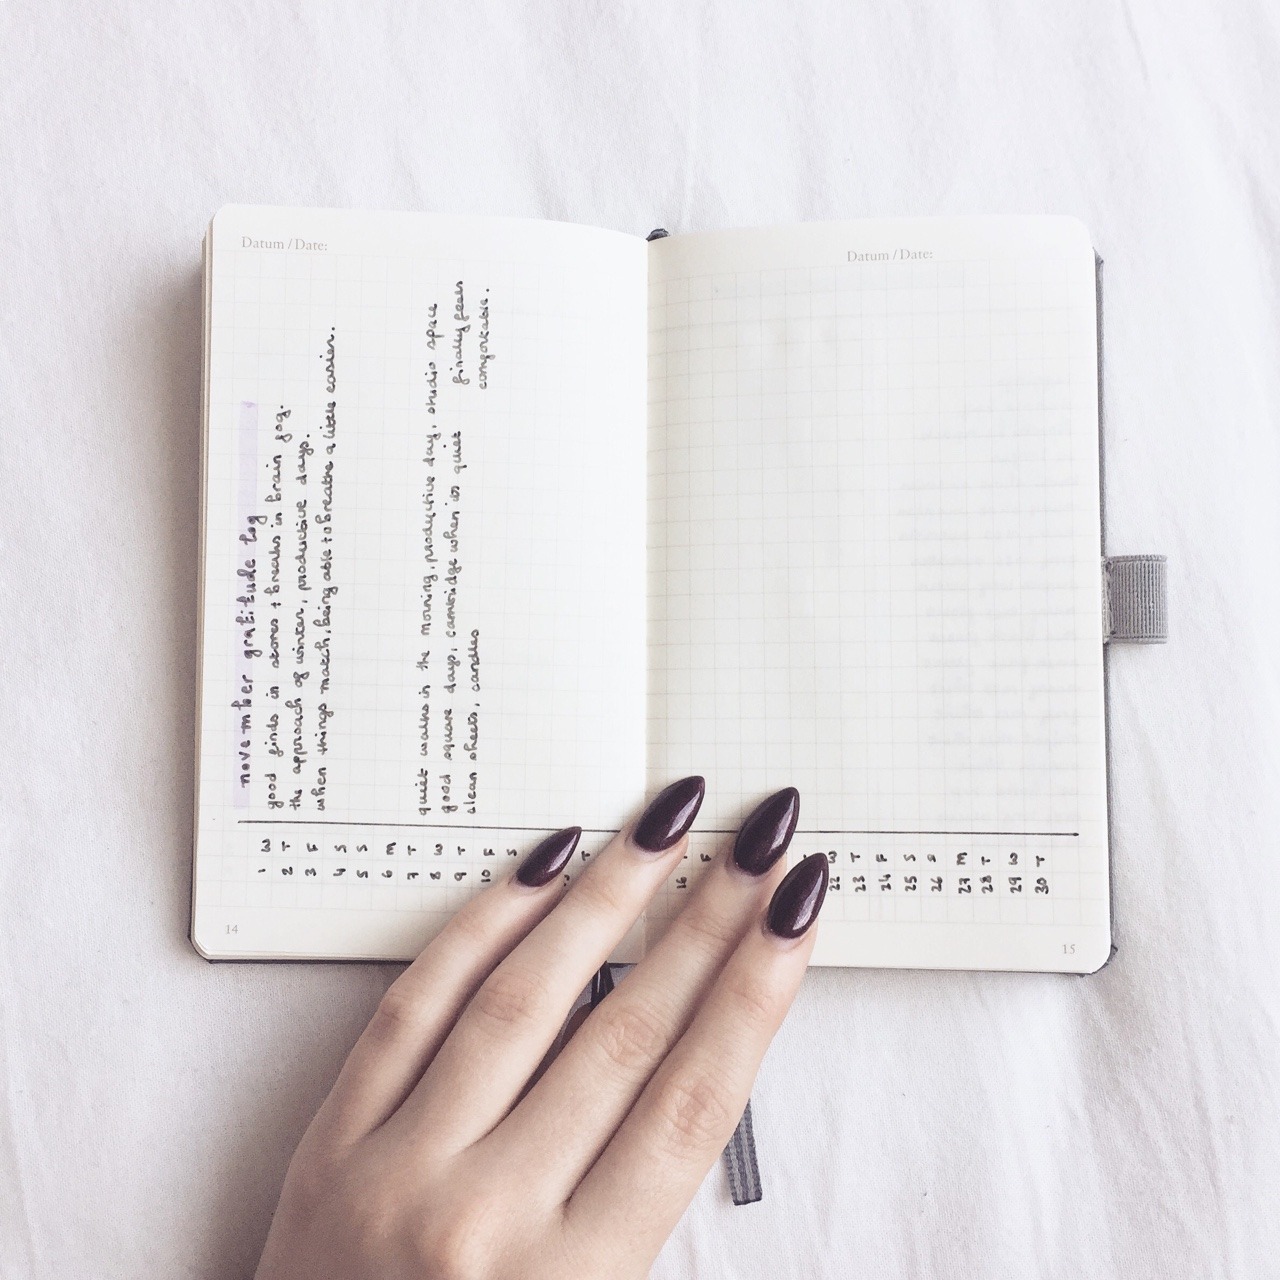 Datum / Date:
Datum / Date:
november gratitude log
1 W good finds in stores + breaks in brain fog.
2 T the approach of winter, productive days.
3 F when things match, being able to breathe a little easier.
4 S
5 S
6 M
7 T quiet walks in the morning, productive day, studio space finally feels comfortable.
8 W good square days, cambridge when its quiet
9 T clean sheets, candles
10 F
S
T
16
F
22 W
23 T
24 F
25 S
26 S
27 M
28 T
29 W
30 T
14
15